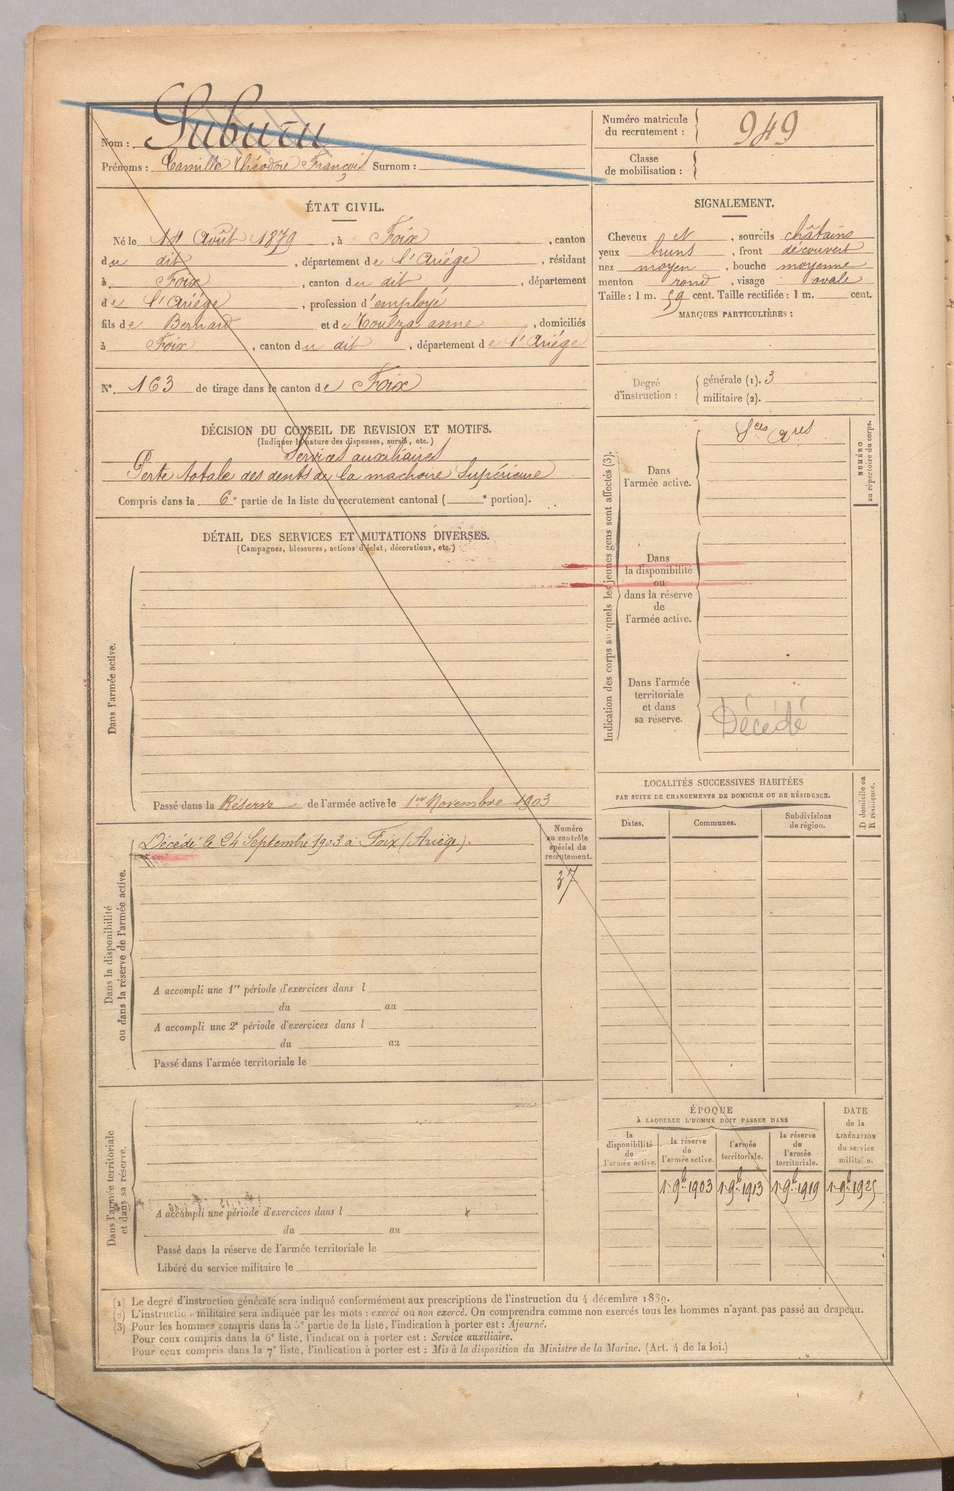 Nom : Suburu
Prénoms : Camille Théodore François Surnom :
Numéro matricule
du recrutement : 949
Classe
de mobilisation :
ÉTAT CIVIL.
Né le 14 Août 1879, à Foix, canton
du dit, département de l'Ariége, résidant
à Foix, canton du dit, département
de l'Ariége, profession d'employé
fils de Bernard et de Toulza anne, domiciliés
à Foix, canton du dit, département de l'Ariége
N° 163 de tirage dans le canton de Foix
SIGNALEMENT.
Cheveux N, sourcils châtains
yeux bruns, front découvert
nez moyen, bouche moyenne
menton rond, visage ovale
Taille : 1 m. 59 cent. Taille rectifiée : 1 m. cent.
MARQUES PARTICULIÈRES :
Degré
d'instruction :
générale (1). 3
militaire (2).
DÉCISION DU CONSEIL DE REVISION ET MOTIFS.
(Indiquer la nature des dispenses, sursis, etc.)
Services auxiliaires
Perte totale des dents de la machoire Supérieure
Compris dans la 6e partie de la liste du recrutement cantonal ( e portion).
DÉTAIL DES SERVICES ET MUTATIONS DIVERSES.
(Campagnes, blessures, actions d'éclat, décorations, etc.)
Dans l'armée active.
Passé dans la Réserve de l'armée active le 1er Novembre 1903
Indication des corps auxquels les jeunes gens sont affectés (3).
Dans
l'armée active.
Sces Ares
NUMÉRO
au répertoire du corps.
Dans
la disponibilité
ou
dans la réserve
de
l'armée active.
Dans l'armée
territoriale
et dans
sa réserve.
Décédé
Dans la disponibilité
ou dans la réserve de l'armée active.
Décédé le 24 Septembre 1903 à Foix (Ariège).
Numéro
au contrôle
spécial du
recrutement.
37
A accompli une 1re période d'exercices dans l
du au
A accompli une 2e période d'exercices dans l
du au
Passé dans l'armée territoriale le
LOCALITÉS SUCCESSIVES HABITÉES
PAR SUITE DE CHANGEMENTS DE DOMICILE OU DE RÉSIDENCE.
Dates.
Communes.
Subdivisions
de région.
D domicile ou
R résidence.
Dans l'armée territoriale
et dans sa réserve.
A accompli une période d'exercices dans l
du au
Passé dans la réserve de l'armée territoriale le
Libéré du service militaire le
ÉPOQUE
À LAQUELLE L'HOMME DOIT PASSER DANS
la
disponibilité
de
l'armée active.
la réserve
de
l'armée active.
l'armée
territoriale.
la réserve
de
l'armée
territoriale.
DATE
de la
LIBÉRATION
du service
militaire.
1r 9b 1903 1r 9b 1913 1r 9b 1919 1r 9b 1925
(1) Le degré d'instruction générale sera indiqué conformément aux prescriptions de l'instruction du 4 décembre 1889.
(2) L'instruction militaire sera indiquée par les mots : exercé ou non exercé. On comprendra comme non exercés tous les hommes n'ayant pas passé au drapeau.
(3) Pour les hommes compris dans la 5e partie de la liste, l'indication à porter est : Ajourné.
Pour ceux compris dans la 6e liste, l'indication à porter est : Service auxiliaire.
Pour ceux compris dans la 7e liste, l'indication à porter est : Mis à la disposition du Ministre de la Marine. (Art. 4 de la loi.)